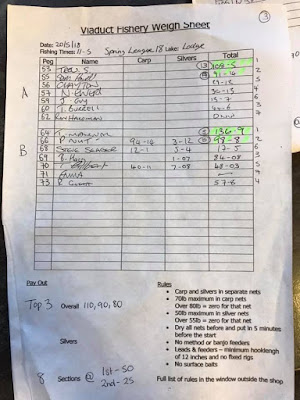 3
Viaduct Fishery Weigh Sheet
Date: 20/5/18
Fishing Times: 11-5 Spring League/18 Lake: Lodge
Peg Name Carp Silvers Total
A
53 108-5 1
55 91-14 2
56 CLAYTON
57
59 J. Guy 15-7
60
62 Ken Hardiman DNW
B
64 136-9 1
66 P NUT 94-12 3-12 98-8 2
68 Steve Seager 12-1 5-4 17-5 6
69 1-07 84-08 3
70 40-11 7-08 48-03 5
71 ANNA
73 57-8 4
Pay Out
Top 3 Overall 110, 90, 80
Silvers
8 Sections @ 1st-50
2nd-25
Rules
• Carp and silvers in separate nets
• 70lb maximum in carp nets
Over 80lb = zero for that net
• 50lb maximum in silver nets
Over 55lb = zero for that net
• Dry all nets before and put in 5 minutes
before the start
• No method or banjo feeders
• Leads & feeders – minimum hooklength
of 12 inches and no fixed rigs
• No surface baits
Full list of rules in the window outside the shop